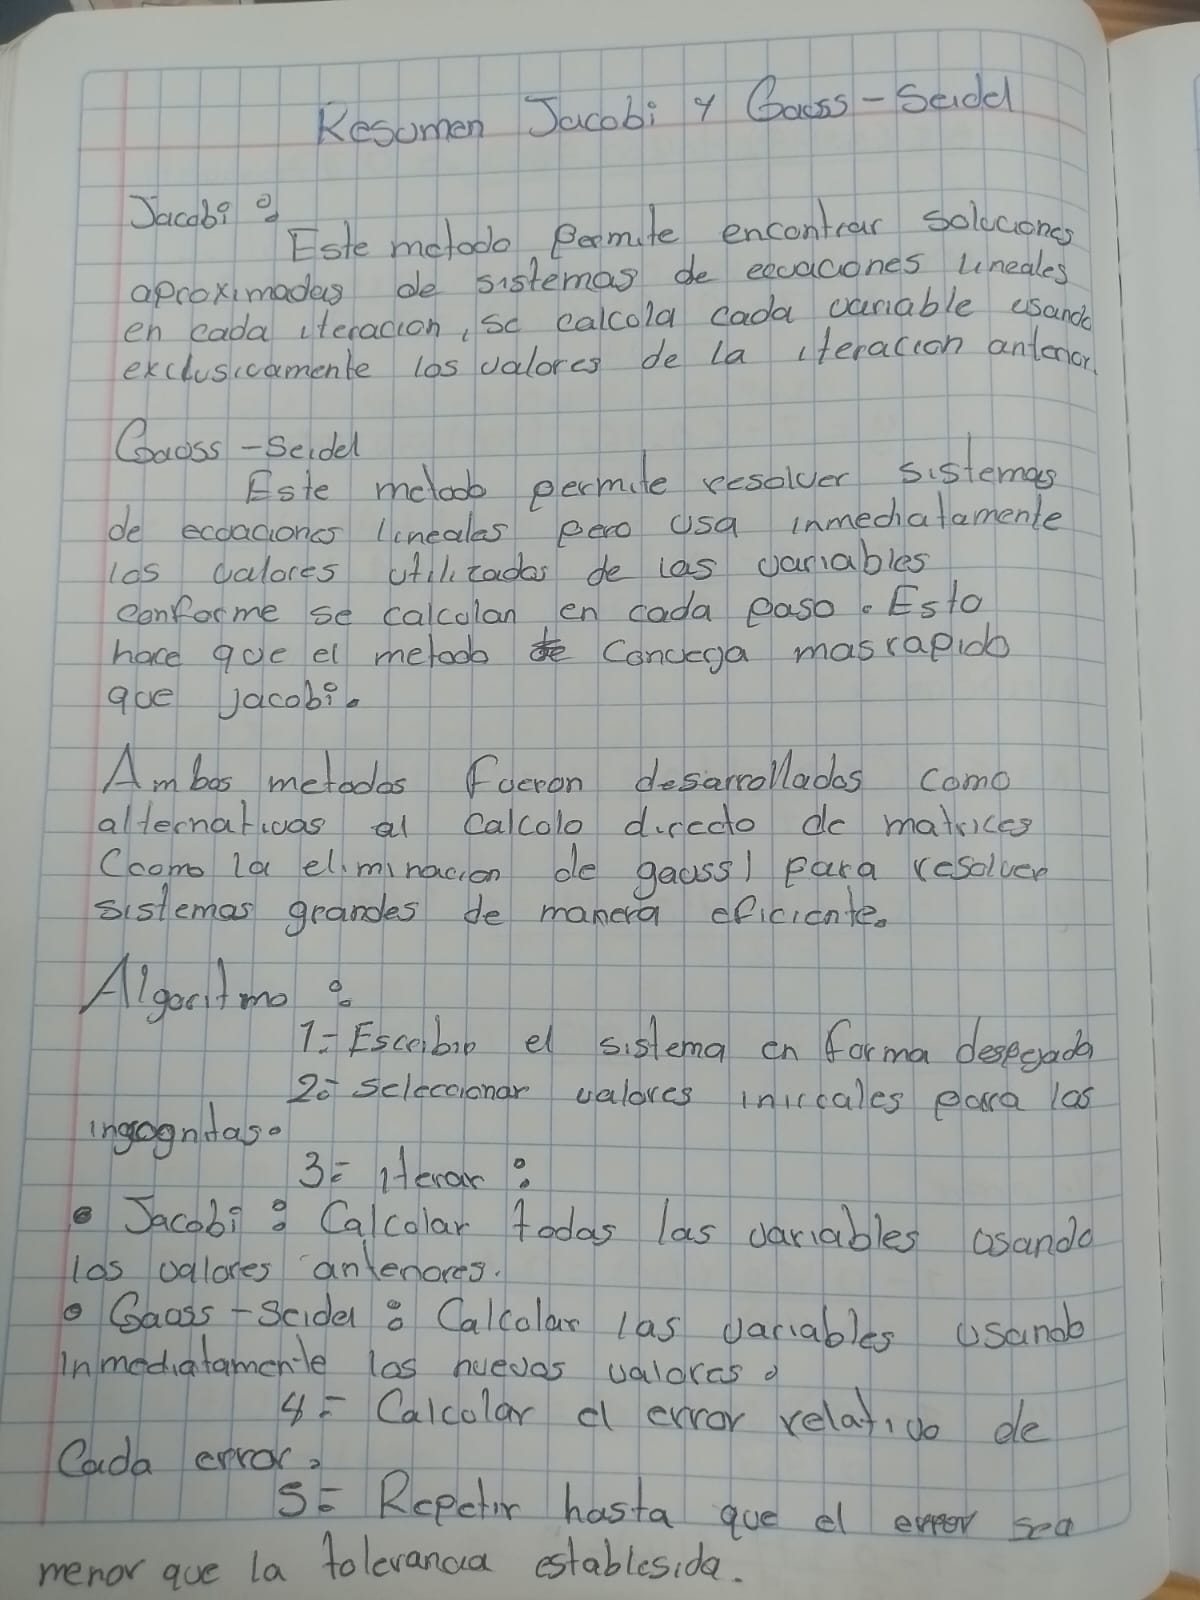 Resumen Jacobi y Gauss-Seidel
Jacobi:
Este metodo permite encontrar soluciones
aproximadas de sistemas de ecuaciones lineales
en cada iteracion, se calcula cada variable usando
exclusicamente los valores de la iteracion anterior.
Gauss-Seidel
Este metodo permite resolver sistemas
de ecuaciones lineales pero usa inmediatamente
los valores utilizados de las variables
conforme se calculan en cada paso. Esto
hace que el metodo converga mas rapido
que jacobi.
Ambos metodos fueron desarrollados como
alternativas al calculo directo de matrices
(como la eliminacion de gauss) para resolver
sistemas grandes de manera eficiente.
Algoritmo:
1= Escribir el sistema en forma despejada
2= seleccionar valores iniciales para las
ingognitas.
3= iterar:
• Jacobi: Calcular todas las variables usando
los valores anteriores.
• Gauss-Seidel: Calcular las variables usando
inmediatamente los nuevos valores.
4= Calcular el error relativo de
Cada error.
5= Repetir hasta que el error sea
menor que la tolerancia establesida.